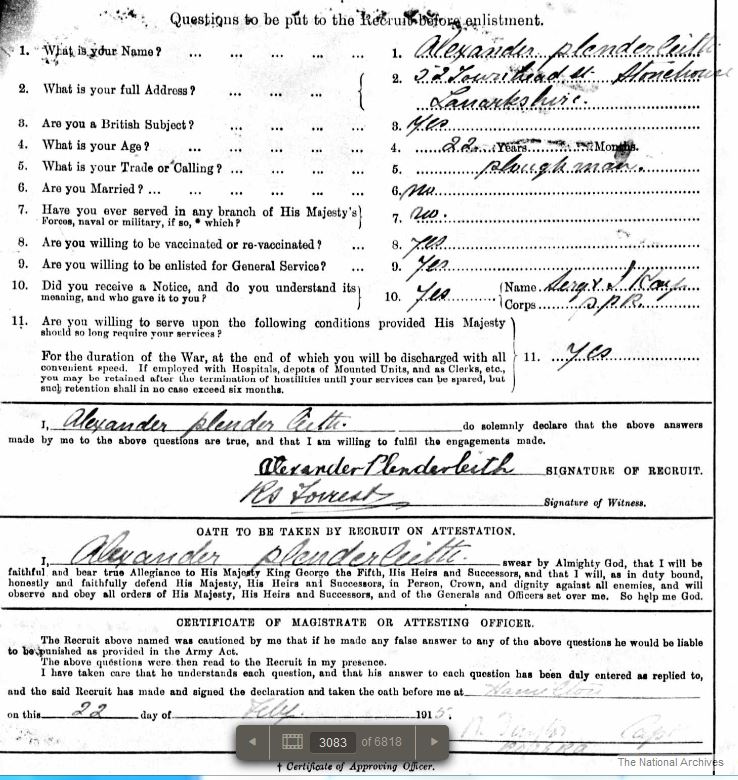 Questions to be put to the Recruit before enlistment.
1. What is your Name? ... ... ... ... 1. Alexander plenderleith
2. What is your full Address? ... ... ... 2. 22 Townhead st Stonehouse
Lanarkshire.
3. Are you a British Subject? ... ... ... ... 3. Yes
4. What is your Age? ... ... ... ... 4. 22 Years Months.
5. What is your Trade or Calling? ... ... ... ... 5. ploughman.
6. Are you Married? ... ... ... ... ... 6. no
7. Have you ever served in any branch of His Majesty's
Forces, naval or military, if so, * which? 7. no.
8. Are you willing to be vaccinated or re-vaccinated? ... 8. Yes
9. Are you willing to be enlisted for General Service? ... 9. Yes
10. Did you receive a Notice, and do you understand its
meaning, and who gave it to you? 10. Yes Name Sergt
Corps
11. Are you willing to serve upon the following conditions provided His Majesty
should so long require your services?
For the duration of the War, at the end of which you will be discharged with all
convenient speed. If employed with Hospitals, depots of Mounted Units, and as Clerks, etc.,
you may be retained after the termination of hostilities until your services can be spared, but
such retention shall in no case exceed six months. 11. Yes
I, Alexander plenderleith. do solemnly declare that the above answers
made by me to the above questions are true, and that I am willing to fulfil the engagements made.
Alexander Plenderleith SIGNATURE OF RECRUIT.
Rs Forrest Signature of Witness.
OATH TO BE TAKEN BY RECRUIT ON ATTESTATION.
I, Alexander plenderleith swear by Almighty God, that I will be
faithful and bear true Allegiance to His Majesty King George the Fifth, His Heirs and Successors, and that I will, as in duty bound,
honestly and faithfully defend His Majesty, His Heirs and Successors, in Person, Crown, and dignity against all enemies, and will
observe and obey all orders of His Majesty, His Heirs and Successors, and of the Generals and Officers set over me. So help me God.
CERTIFICATE OF MAGISTRATE OR ATTESTING OFFICER.
The Recruit above named was cautioned by me that if he made any false answer to any of the above questions he would be liable
to be punished as provided in the Army Act.
The above questions were then read to the Recruit in my presence.
I have taken care that he understands each question, and that his answer to each question has been duly entered as replied to,
and the said Recruit has made and signed the declaration and taken the oath before me at Hamilton
on this 22 day of Feby 1915.
Capt
3083 of 6818
The National Archives
† Certificate of Approving Officer.